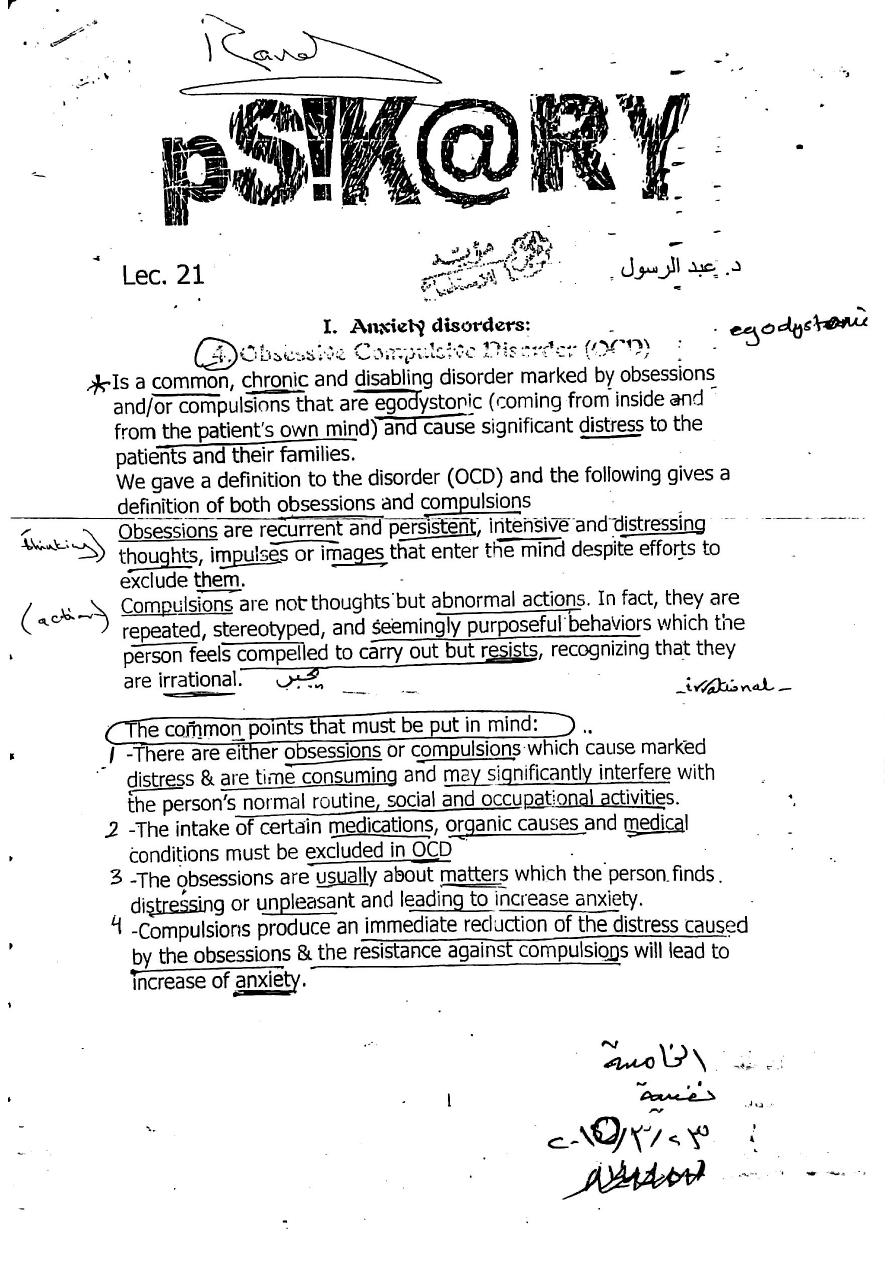 pS!K@RY
Lec. 21
د. عبد الرسول
I. Anxiety disorders:
egodystonic
4. Obsessive Compulsive Disorder (OCD)
*Is a common, chronic and disabling disorder marked by obsessions
and/or compulsions that are egodystonic (coming from inside and
from the patient's own mind) and cause significant distress to the
patients and their families.
We gave a definition to the disorder (OCD) and the following gives a
definition of both obsessions and compulsions
Obsessions are recurrent and persistent, intensive and distressing
(thinking)
thoughts, impulses or images that enter the mind despite efforts to
exclude them.
Compulsions are not thoughts but abnormal actions. In fact, they are
(action)
repeated, stereotyped, and seemingly purposeful behaviors which the
person feels compelled to carry out but resists, recognizing that they
are irrational.
مجبر
irrational
The common points that must be put in mind:
1 -There are either obsessions or compulsions which cause marked
distress & are time consuming and may significantly interfere with
the person's normal routine, social and occupational activities.
2 -The intake of certain medications, organic causes and medical
conditions must be excluded in OCD
3 -The obsessions are usually about matters which the person finds
distressing or unpleasant and leading to increase anxiety.
4 -Compulsions produce an immediate reduction of the distress caused
by the obsessions & the resistance against compulsions will lead to
increase of anxiety.
الخامسة
1